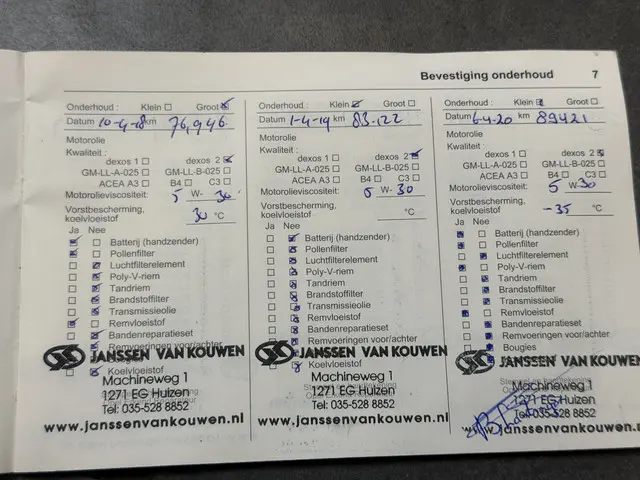 Bevestiging onderhoud 7
Onderhoud : Klein Groot
Datum 10-4-18 km 76,946
Motorolie
Kwaliteit :
dexos 1 dexos 2
GM-LL-A-025 GM-LL-B-025
ACEA A3 B4 C3
Motorolieviscositeit: 5 W- 30
Vorstbescherming,
koelvloeistof 30 °C
Ja Nee
Batterij (handzender)
Pollenfilter
Luchtfilterelement
Poly-V-riem
Tandriem
Brandstoffilter
Transmissieolie
Remvloeistof
Bandenreparatieset
Remvoeringen voor/achter
JANSSEN VAN KOUWEN
Koelvloeistof
Machineweg 1
1271 EG Huizen
Tel: 035-528 8852
www.janssenvankouwen.nl
Onderhoud : Klein Groot
Datum 1-4-19 km 83.122
Motorolie
Kwaliteit :
dexos 1 dexos 2
GM-LL-A-025 GM-LL-B-025
ACEA A3 B4 C3
Motorolieviscositeit: 5 W- 30
Vorstbescherming,
koelvloeistof °C
Ja Nee
Batterij (handzender)
Pollenfilter
Luchtfilterelement
Poly-V-riem
Tandriem
Brandstoffilter
Transmissieolie
Remvloeistof
Bandenreparatieset
Remvoeringen voor/achter
JANSSEN VAN KOUWEN
Koelvloeistof
Machineweg 1
1271 EG Huizen
Tel: 035-528 8852
www.janssenvankouwen.nl
Onderhoud : Klein Groot
Datum 6-4-20 km 89421
Motorolie
Kwaliteit :
dexos 1 dexos 2
GM-LL-A-025 GM-LL-B-025
ACEA A3 B4 C3
Motorolieviscositeit: 5 W-30
Vorstbescherming,
koelvloeistof -35 °C
Ja Nee
Batterij (handzender)
Pollenfilter
Luchtfilterelement
Poly-V-riem
Tandriem
Brandstoffilter
Transmissieolie
Remvloeistof
Bandenreparatieset
Remvoeringen voor/achter
Bougies
JANSSEN VAN KOUWEN
Machineweg 1
1271 EG Huizen
Tel: 035-528 8852
www.janssenvankouwen.nl